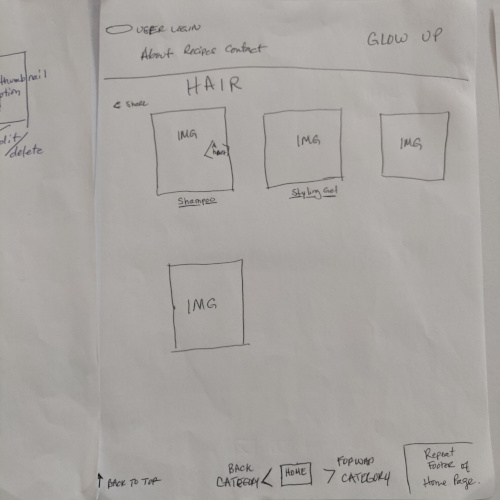 thumbnail
edit/
delete
USER LOGIN
GLOW UP
About Recipes Contact
HAIR
< Share
IMG
IMG
IMG
Shampoo
Styling Gel
IMG
↑ BACK TO TOP
BACK
CATEGORY <
HOME
FORWAD
> CATEGORY
Repeat
Footer of
Home Page.